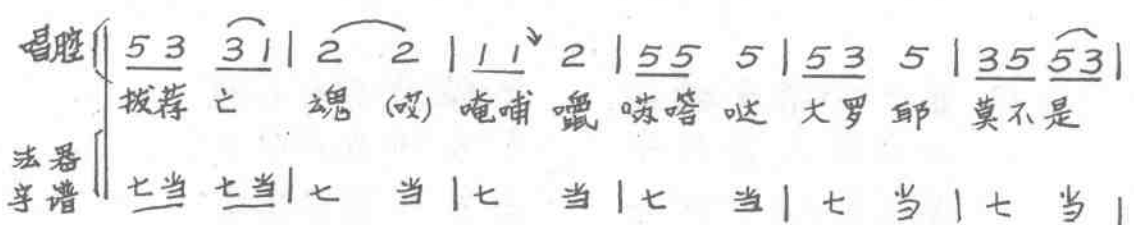 唱腔 5 3 3 1 | 2 2 | 1 1 2 | 5 5 5 | 5 3 5 | 3 5 5 3 |
拔荐亡 魂 (哎) 唵哺 囇 嗦嗒 哒 大罗 耶 莫不是
法器
字谱 七当 七当 | 七 当 | 七 当 | 七 当 | 七 当 | 七 当 |